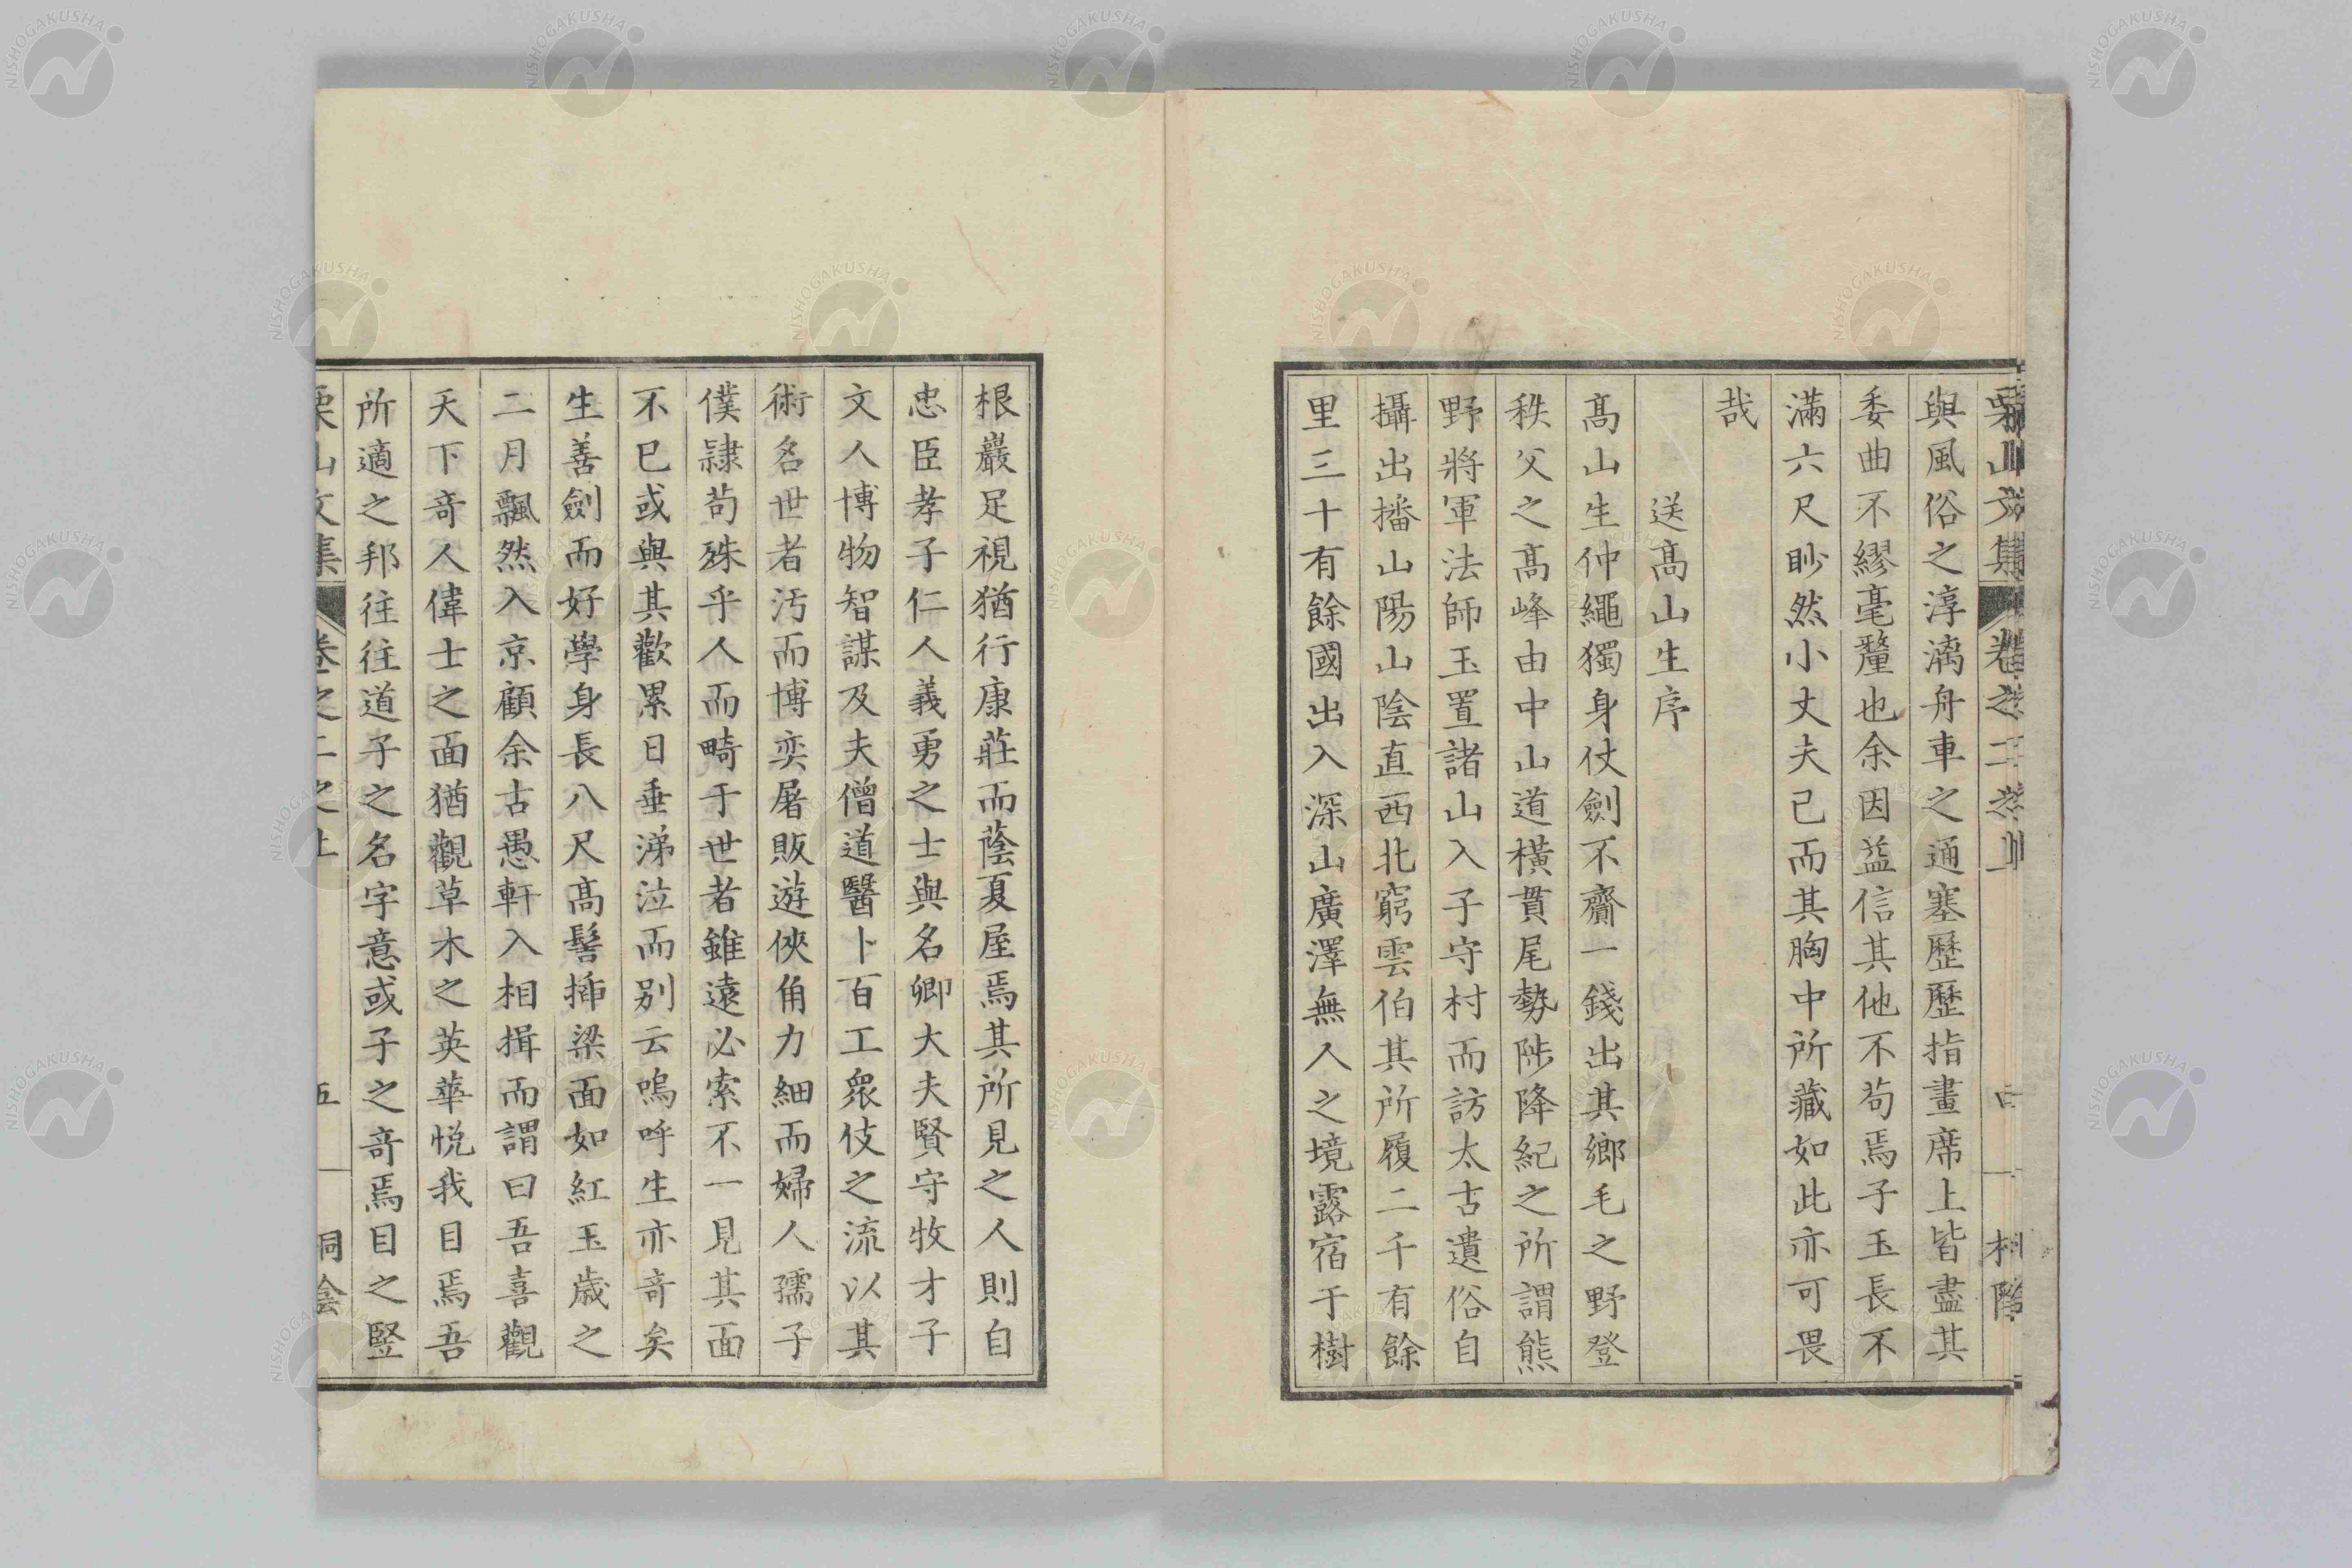 與風俗之淳漓舟車之通塞歷歷指畫席上皆盡其
委曲不繆毫釐也余因益信其他不苟焉子玉長不
滿六尺眇然小丈夫已而其胸中所藏如此亦可畏
哉
送髙山生序
髙山生仲繩獨身仗劍不齎一錢出其鄉毛之野登
秩父之髙峰由中山道橫貫尾勢陟降紀之所謂熊
野將軍法師玉置諸山入子守村而訪太古遺俗自
攝出播山陽山陰直西北窮雲伯其所履二千有餘
里三十有餘國出入深山廣澤無人之境露宿于樹
根巖足視猶行康莊而蔭夏屋焉其所見之人則自
忠臣孝子仁人義勇之士與名卿大夫賢守牧才子
文人博物智謀及夫僧道醫卜百工衆伎之流以其
術名世者汚而博奕屠販遊俠角力細而婦人孺子
僕隷苟殊乎人而畸于世者雖遠必索不一見其面
不已或與其歡累日垂涕泣而別云嗚呼生亦竒矣
生善劍而好學身長八尺髙髻挿梁面如紅玉歳之
二月飄然入京顧余古愚軒入相揖而謂曰吾喜觀
天下竒人偉士之面猶觀草木之英華悅我目焉吾
所適之邦往往道子之名字意或子之竒焉目之竪
栗山文集 卷之二之上 五 桐陰
NISHOGAKUSHA